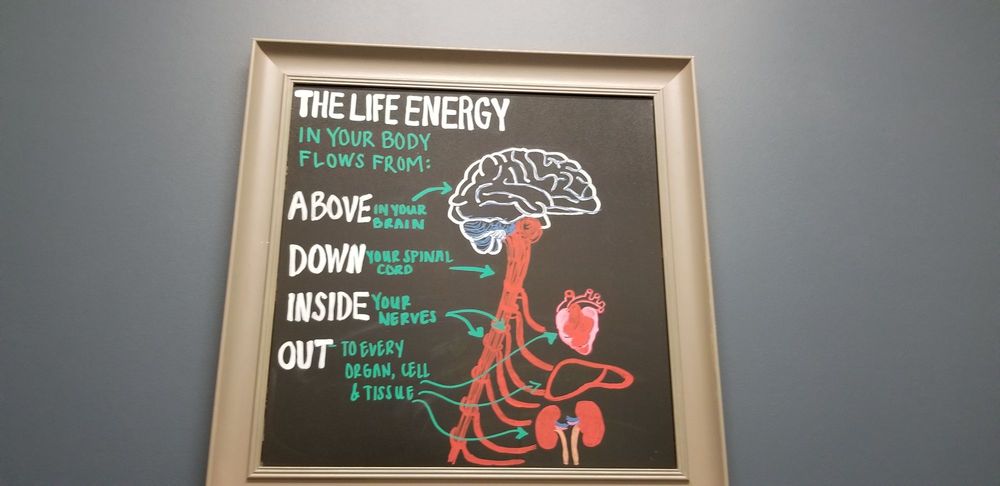 THE LIFE ENERGY
IN YOUR BODY
FLOWS FROM:
ABOVE IN YOUR
BRAIN
DOWN YOUR SPINAL
CORD
INSIDE YOUR
NERVES
OUT - TO EVERY
ORGAN, CELL
& TISSUE